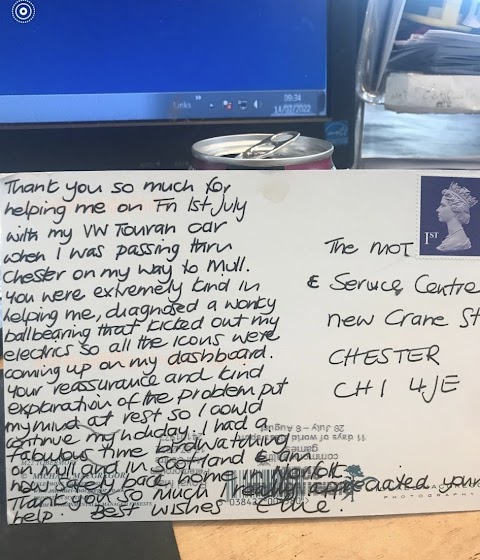 Links
09:34
14/07/2022
Thank you so much for
helping me on Fri 1st July
with my VW Touran car
when I was passing thru
Chester on my way to Mull.
You were extremely kind in
helping me, diagnosed a wonky
ballbearing that kicked out my
electrics so all the icons were
coming up on my dashboard.
Your reassurance and kind
explanation of the problem put
my mind at rest so I could
continue my holiday. I had a
fabulous time birdwatching
on Mull and in Scotland & am
now safely back home in Norfolk.
Thank you so much I really appreciated your
help. Best wishes
1ST
The MOT
& Service Centre
New Crane St
CHESTER
CH1 4JE
11 days of world
28 July - 8 August
PHOTOGRAPHY